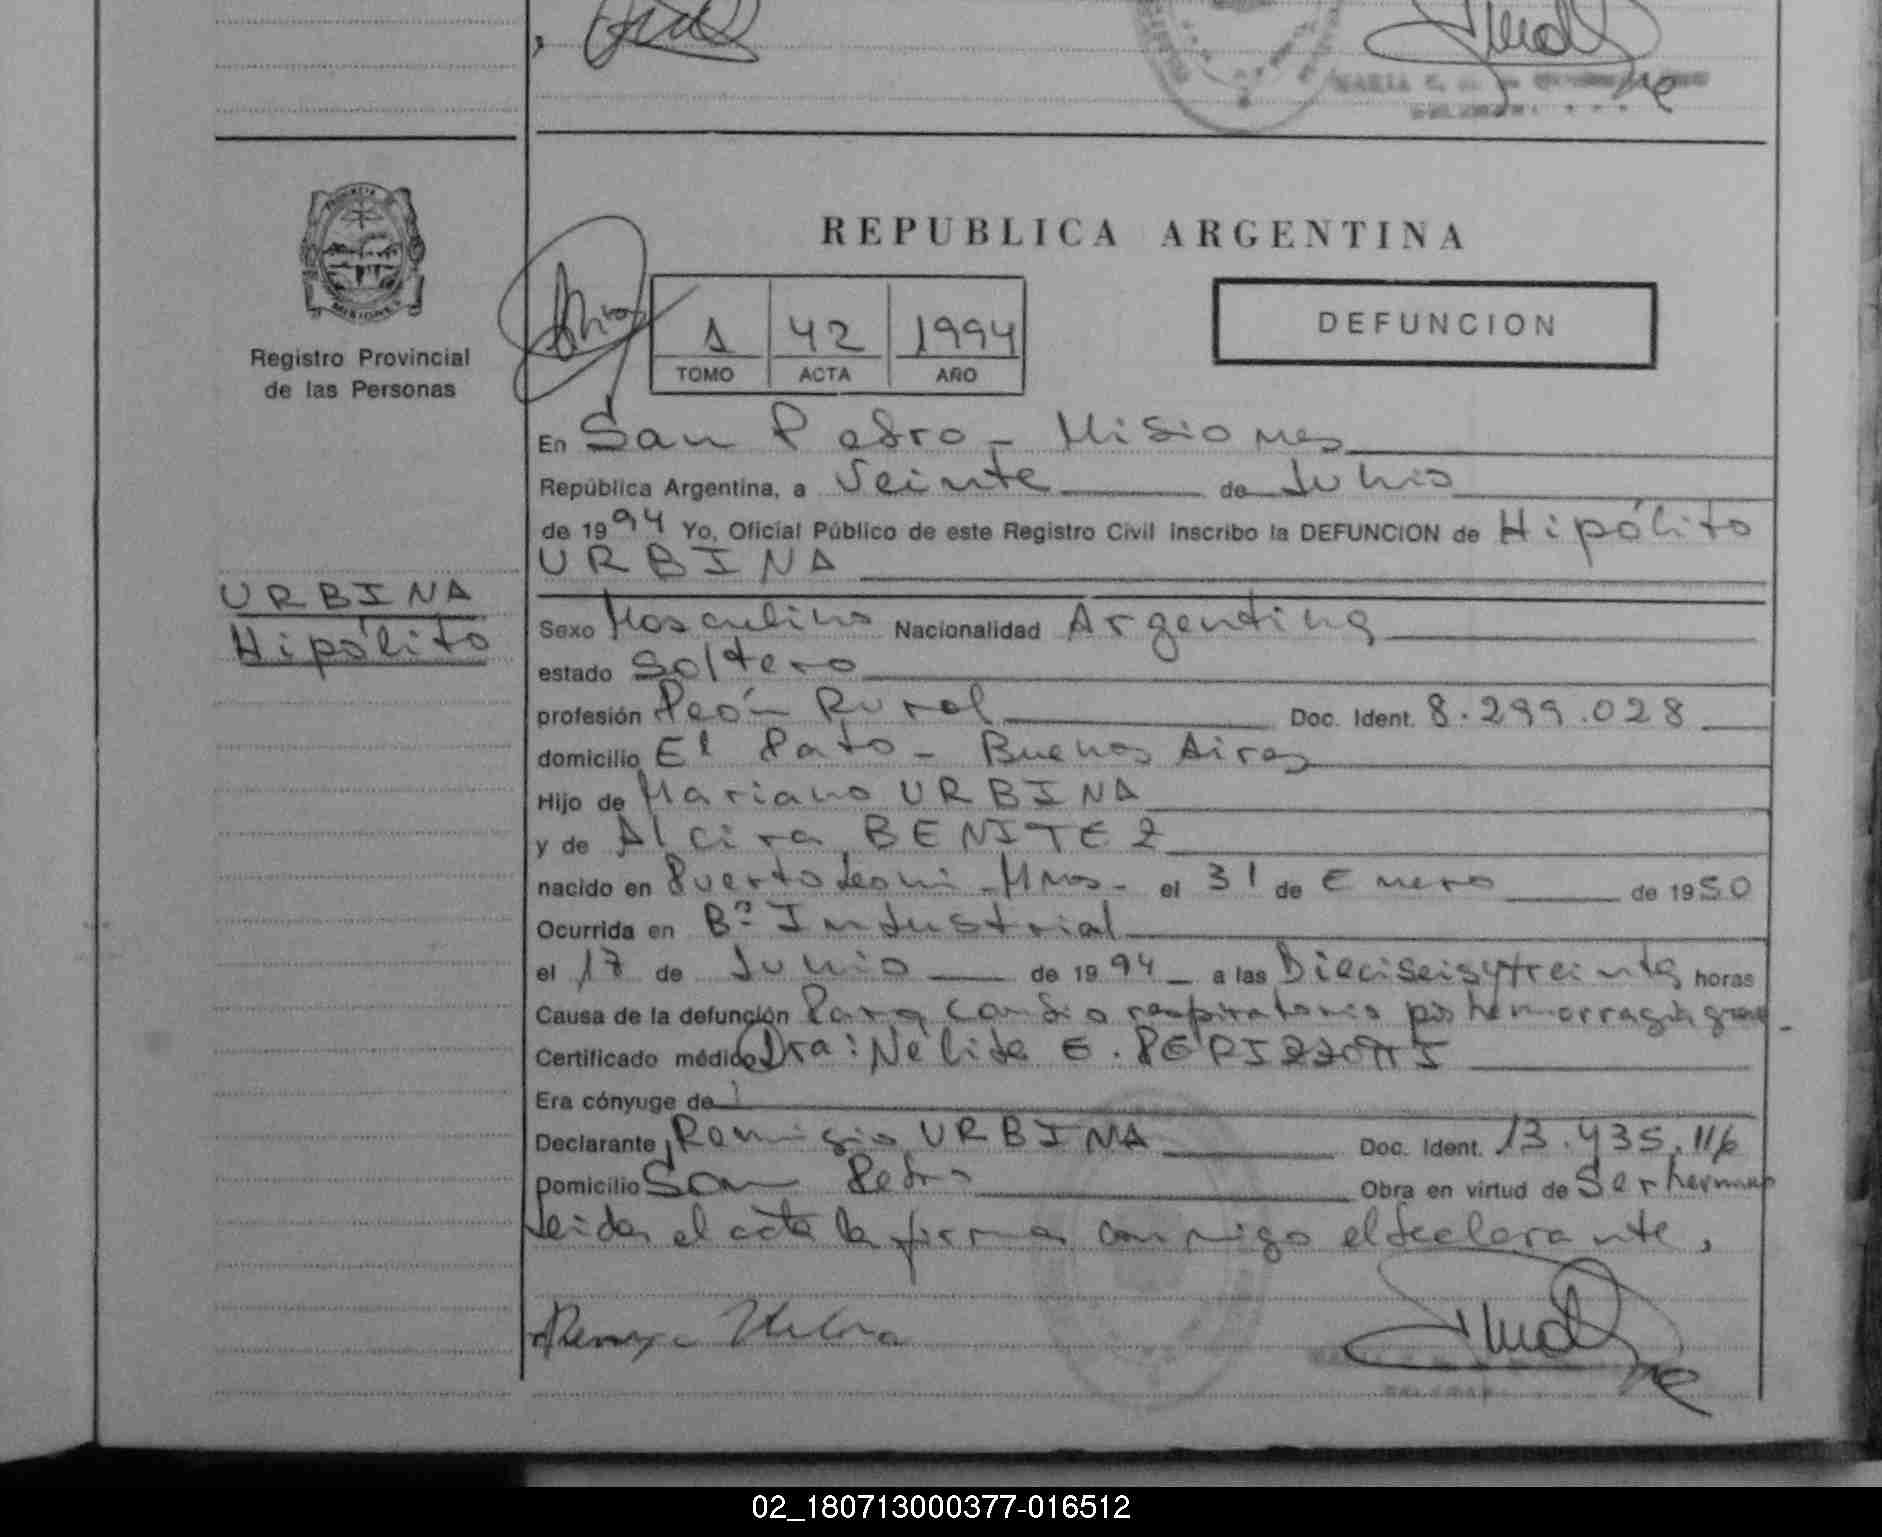 REPUBLICA ARGENTINA
Registro Provincial
de las Personas
MISIONES
1 42 1994
TOMO ACTA AÑO
DEFUNCION
En San Pedro - Misiones
República Argentina, a Veinte de Junio
de 1994 Yo, Oficial Público de este Registro Civil inscribo la DEFUNCION de Hipólito
URBINA
URBINA
Hipólito
Sexo Masculino Nacionalidad Argentina
estado Soltero
profesión Peón Rural Doc. Ident. 8.299.028
domicilio El Pato - Buenos Aires
Hijo de Mariano URBINA
y de Alcira BENITEZ
nacido en Puerto Leoni - Mnes - el 31 de Enero de 1950
Ocurrida en Bº Industrial
el 17 de Junio de 1994 - a las Dieciseisytreinta horas
Causa de la defunción Paro cardio respiratorio por hemorragia grave -
Certificado médico Dra: Nélida E. PERIZZOTTI
Era cónyuge de
Declarante, Remigio URBINA Doc. Ident. 13.435.116
Domicilio San Pedro Obra en virtud de Ser hermano
Leida el acta la firma conmigo el declarante,
02_180713000377-016512